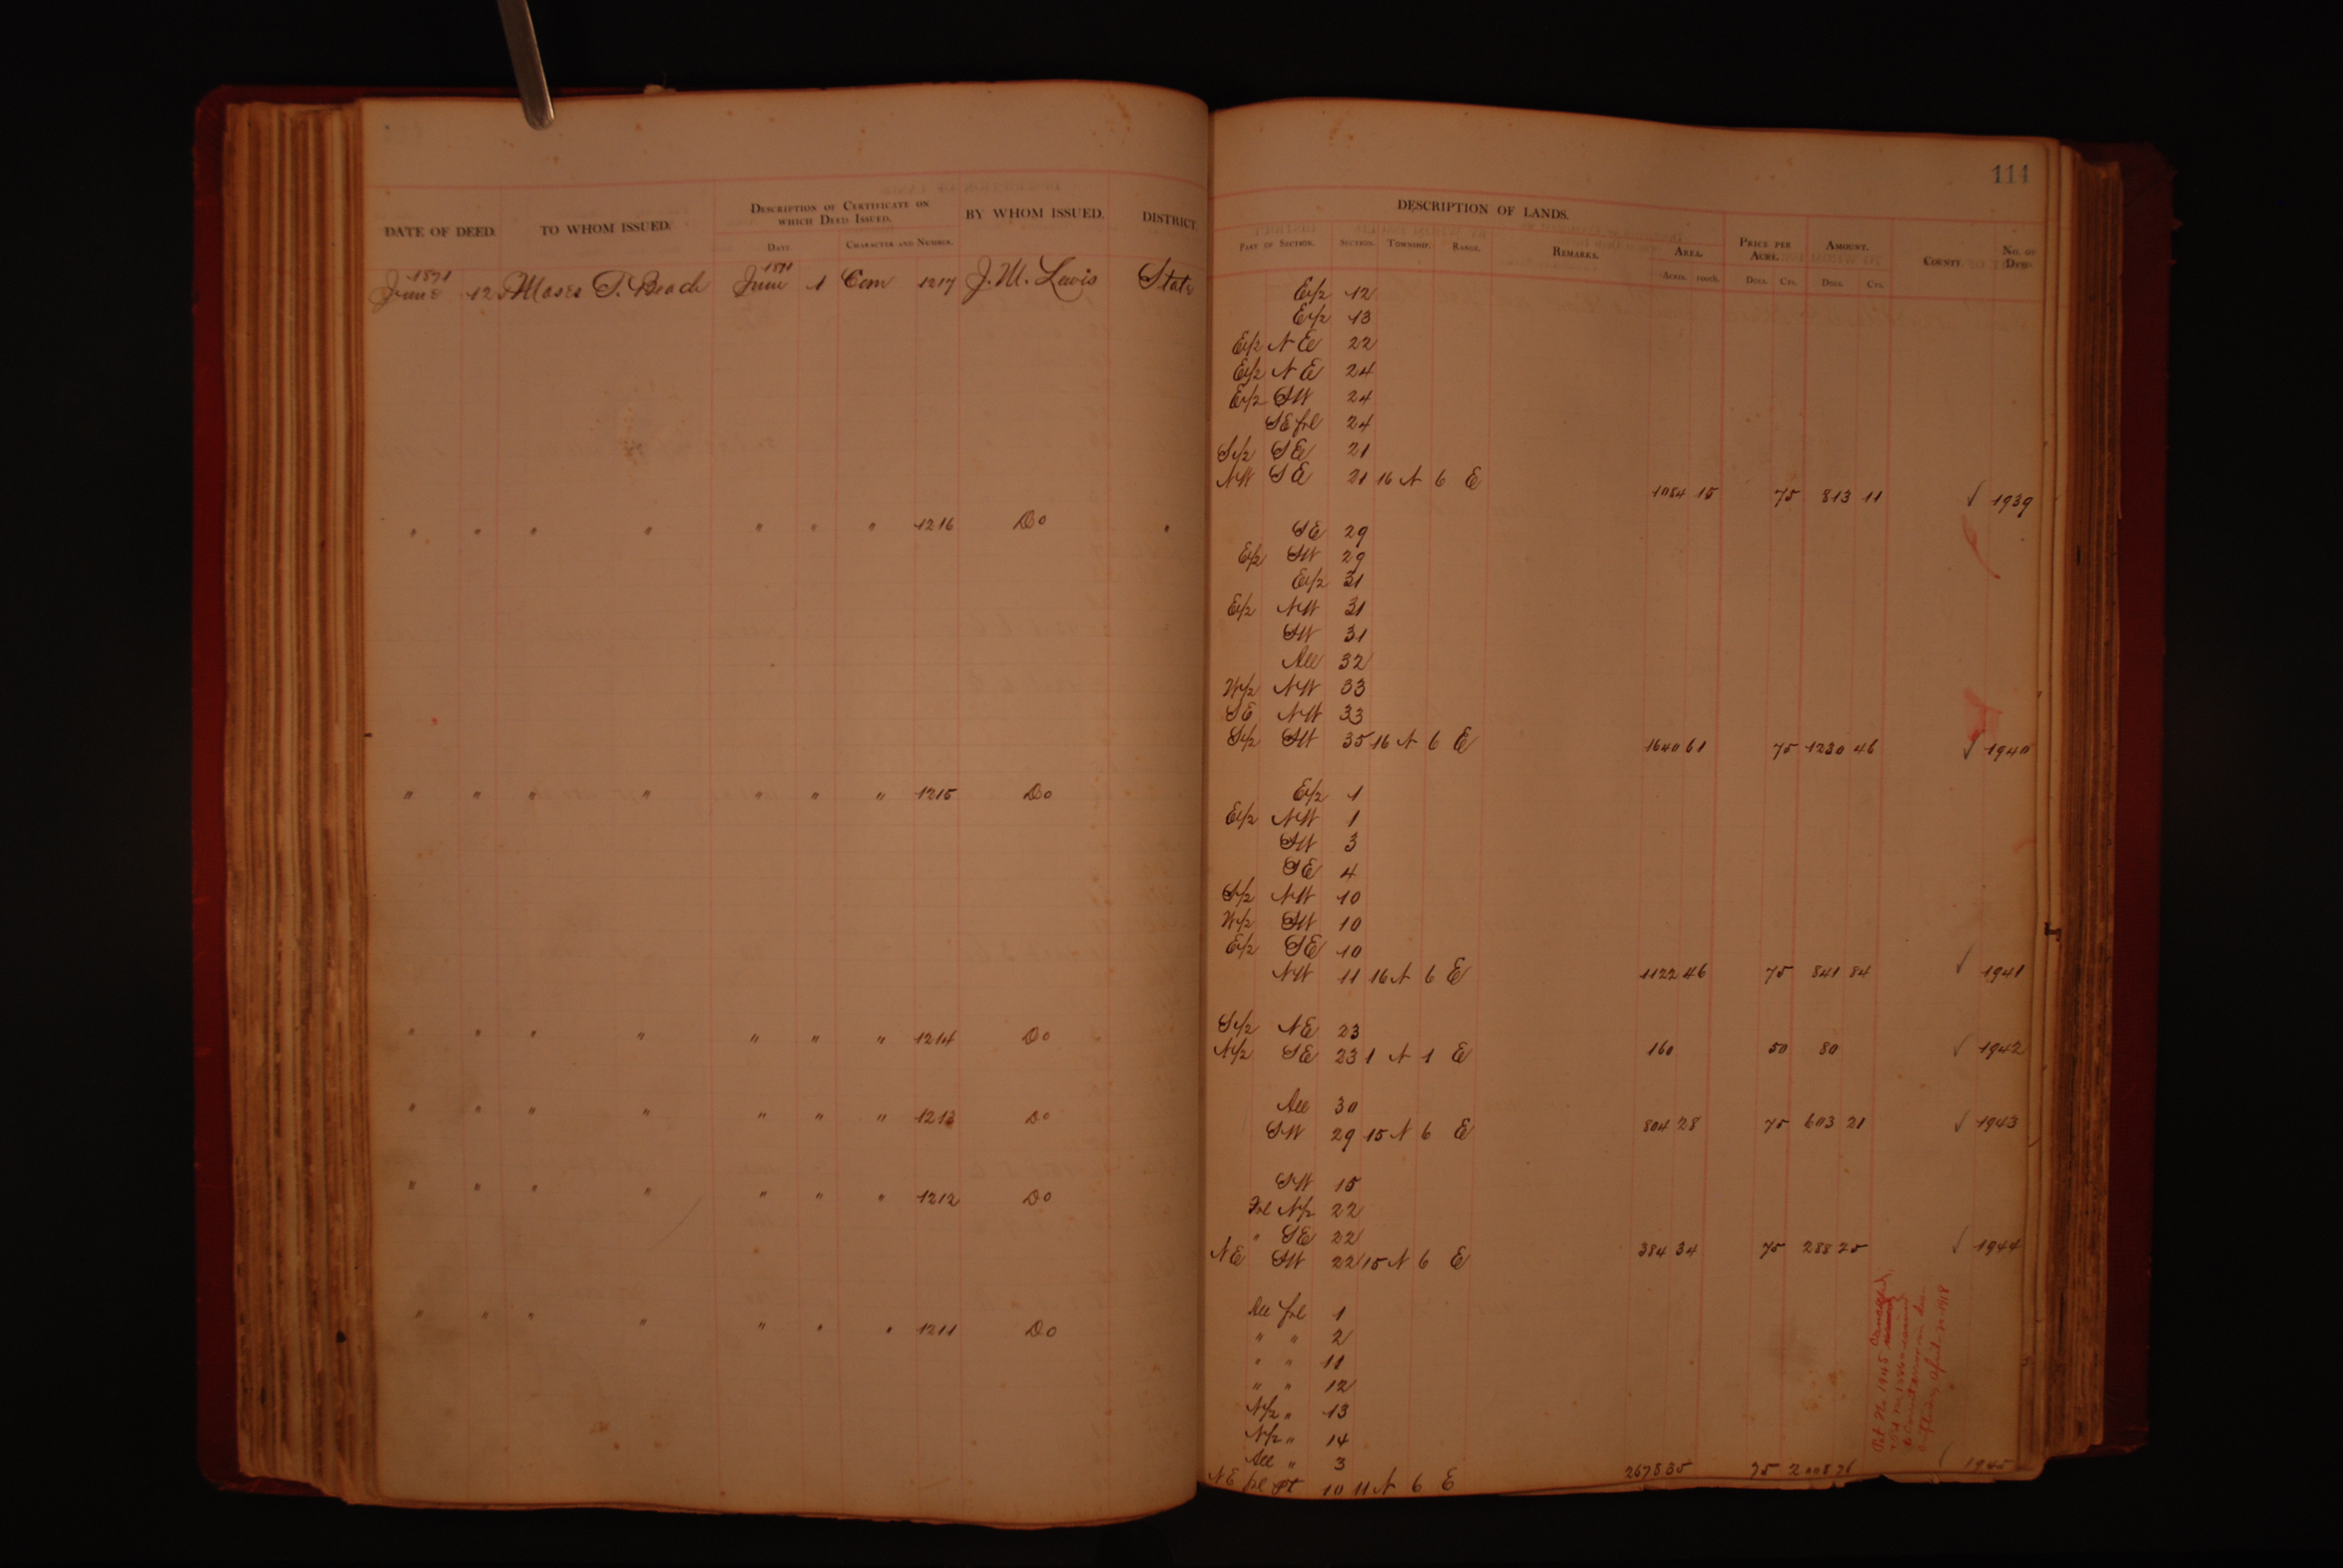 114
DATE OF DEED. TO WHOM ISSUED. DESCRIPTION OF CERTIFICATE ON WHICH DEED ISSUED. BY WHOM ISSUED. DISTRICT.
DATE. CHARACTER AND NUMBER.
DESCRIPTION OF LANDS.
PART OF SECTION. SECTION. TOWNSHIP. RANGE. REMARKS. AREA. PRICE PER ACRE. AMOUNT. COUNTY. NO. OF DEED.
ACRES. 100ths. DOLS. CTS. DOLS. CTS.
1871 1871
June 12 Moses T. Beach June 1 Com 1217 J. M. Lewis State
E1/2 12
E1/2 13
E1/2 NE 22
E1/2 NE 24
E1/2 SW 24
SE frl 24
S1/2 SE 21
NW SE 21 16 N 6 E 1084 15 75 813 11 √ 1939
" " " " " " " 1216 Do "
SE 29
E1/2 SW 29
E1/2 31
E1/2 NW 31
SW 31
All 32
W1/2 NW 33
SE NW 33
S1/2 SW 35 16 N 6 E 1640 61 75 1230 46 √ 1940
" " " " " " " 1215 Do
E1/2 1
E1/2 NW 1
SW 3
SE 4
S1/2 NW 10
W1/2 SW 10
E1/2 SE 10
NW 11 16 N 6 E 1122 46 75 841 84 √ 1941
" " " " " " " 1214 Do
S1/2 NE 23
N1/2 SE 23 1 N 1 E 160 50 80 √ 1942
" " " " " " " 1213 Do
All 30
SW 29 15 N 6 E 804 28 75 603 21 √ 1943
" " " " " " " 1212 Do
SW 15
Frl N1/2 22
" SE 22
NE SW 22 15 N 6 E 384 34 75 288 25 √ 1944
" " " " " " " 1211 Do
All frl 1
" " 2
" " 11
" " 12
N1/2 " 13
N1/2 " 14
All " 3
NE frl pt 10 11 N 6 E 2678 35 75 2008 76 1945
Pat No 1945 Canceled
April 1918